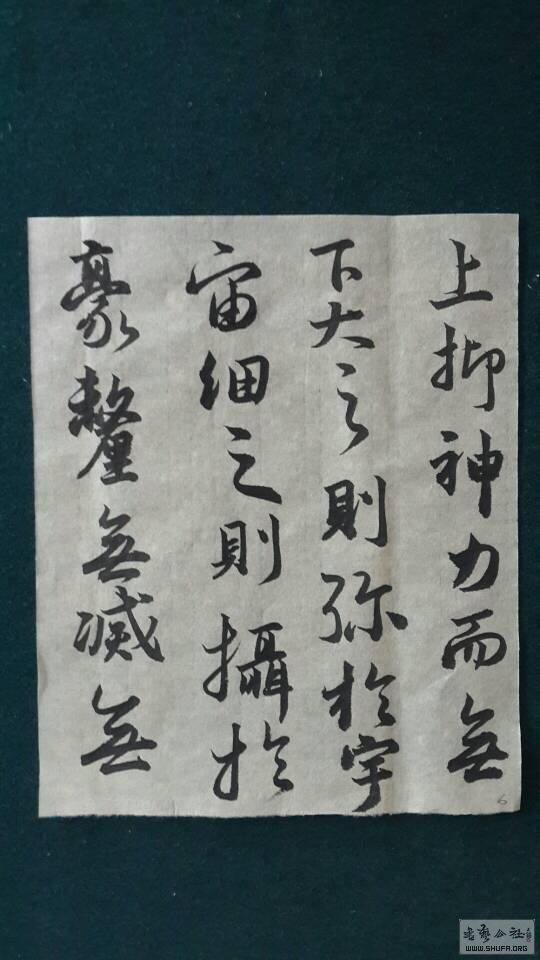 上抑神力而無
下大之則弥於宇
宙細之則攝於
豪釐無减無
6
书艺公社
WWW.SHUFA.ORG